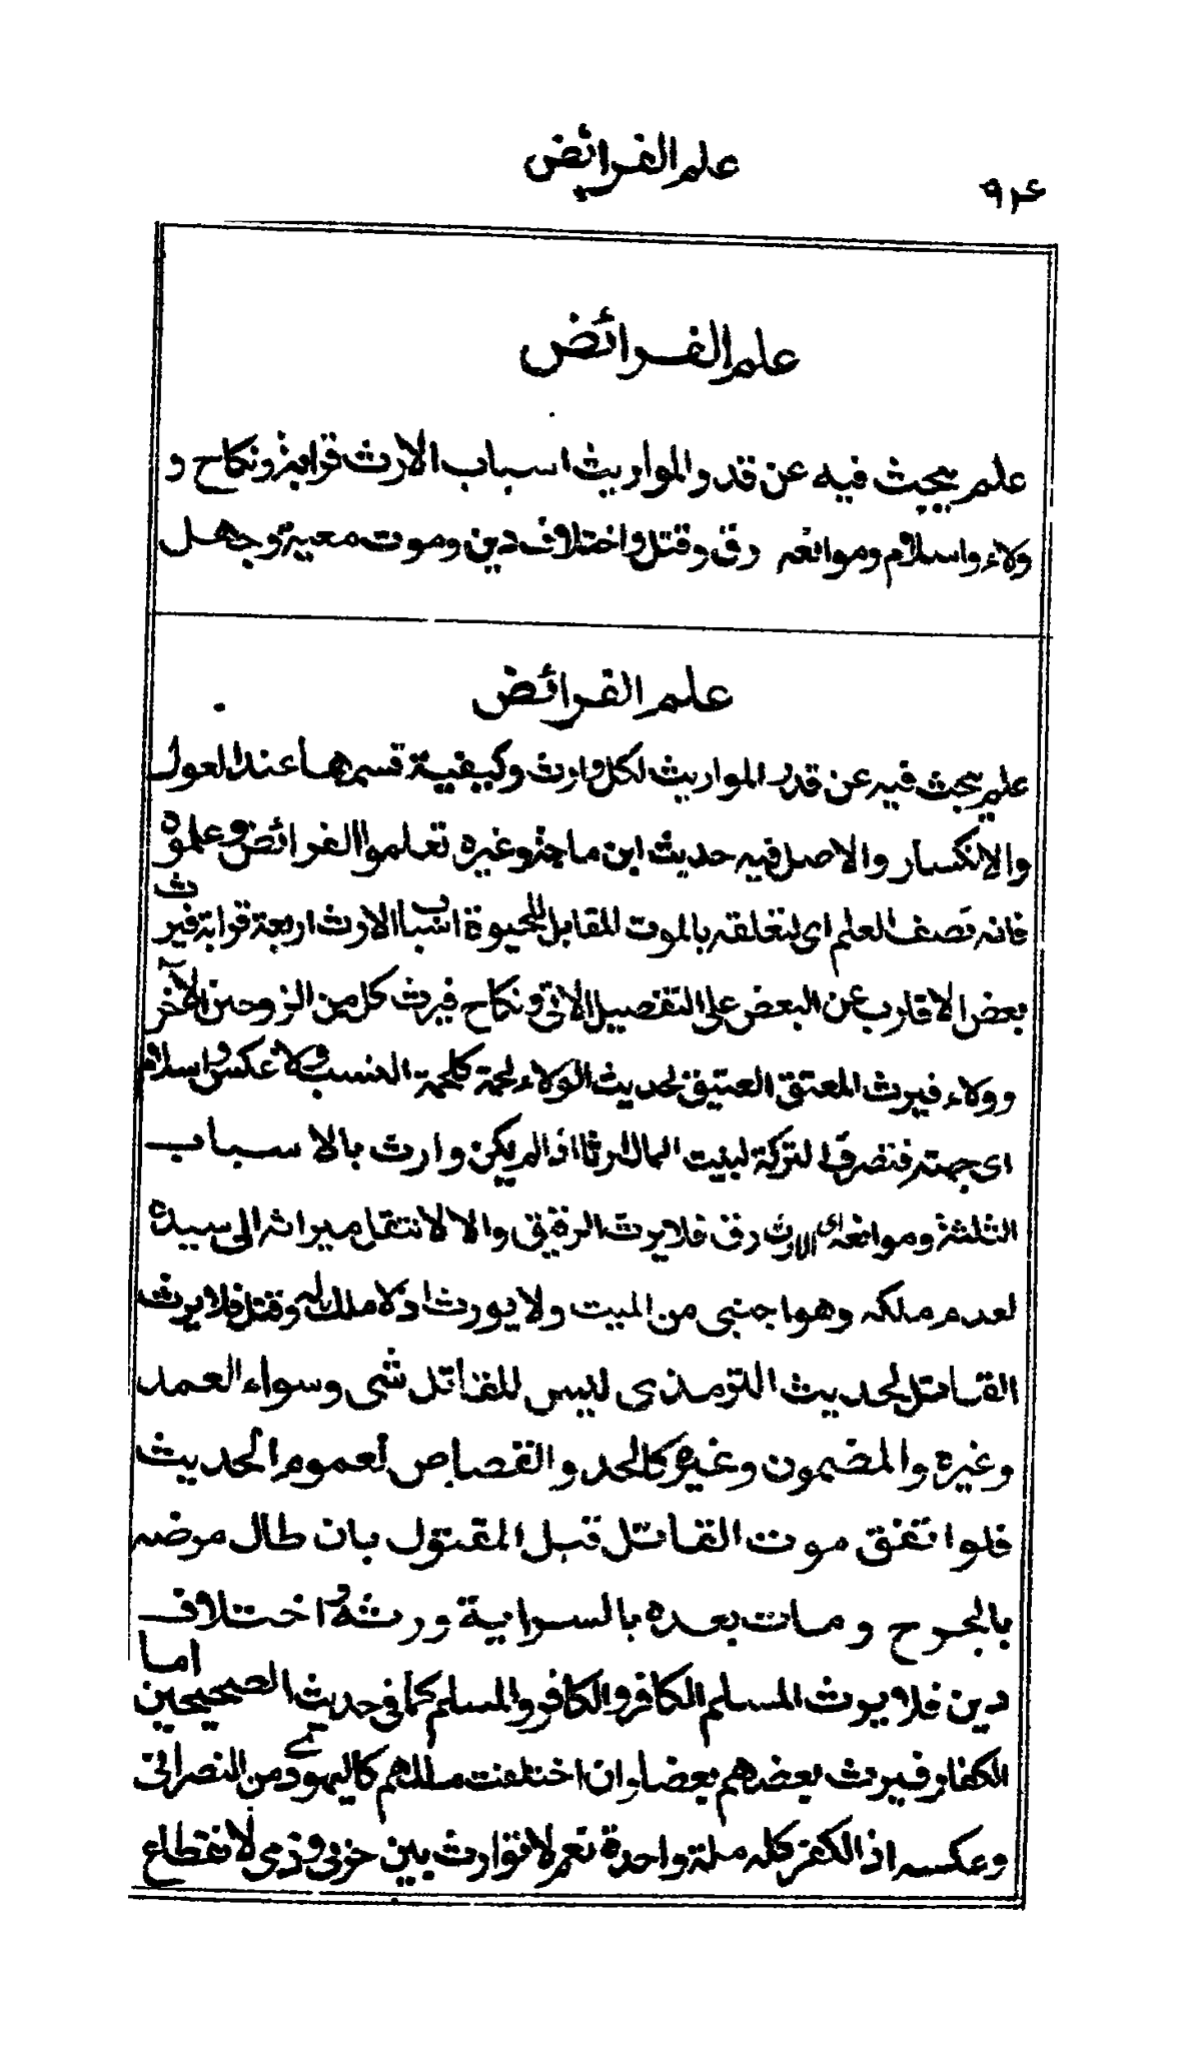 علم الفرائض
٩٤
علم الفرائض
علم يبحث فيه عن قدر المواريث اسباب الارث قرابة ونكاح و
ولاء واسلام وموانعه رق وقتل واختلاف دين وموت معية وجهل
علم الفرائض
علم يبحث فيه عن قدر المواريث لكل وارث وكيفية قسمها عند العول
والانكسار والاصل فيه حديث ابن ماجة وغيره تعلموا الفرائض وعلموه
فانه نصف العلم اى لتعلقه بالموت المقابل للحيوة اسباب الارث اربعة قرابة فيرث
بعض الاقارب عن البعض على التفصيل الآتى ونكاح فيرث كل من الزوجين الآخر
وولاء فيرث المعتق العتيق لحديث الولاء لحمة كلحمة النسب ولا عكس واسلام
اى جهته فتصرف التركة لبيت المال ارثا اذا لم يكن وارث بالاسباب
الثلثة وموانعه اى الارث رق فلا يرث الرقيق والا لانتقل ميراثه الى سيده
لعدم ملكه وهو اجنبى من الميت ولا يورث اذ لا ملك له وقتل فلا يرث
القاتل لحديث الترمذى ليس للقاتل شى وسواء العمد
وغيره والمضمون وغيره كالحد والقصاص لعموم الحديث
فلو اتفق موت القاتل قبل المقتول بان طال مرضه
بالجرح ومات بعده بالسراية ورثه واختلاف
دين فلا يرث المسلم الكافر والكافر المسلم كما فى حديث الصحيحين اما
الكفار فيرث بعضهم بعضا وان اختلفت مللهم كاليهودى من النصرانى
وعكسه اذ الكفر كله ملة واحدة نعم لا توارث بين حربى وذمى لانقطاع